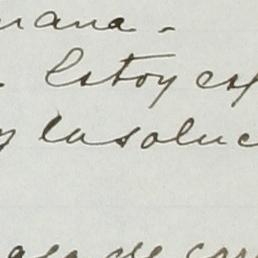 mana.
. Estoy es
y la soluc